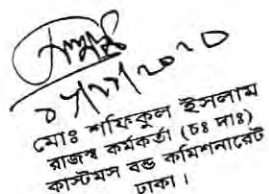 মোঃ শফিকুল ইসলাম
রাজস্ব কর্মকর্তা (চঃ দাঃ)
কাস্টমস বন্ড কমিশনারেট
ঢাকা।